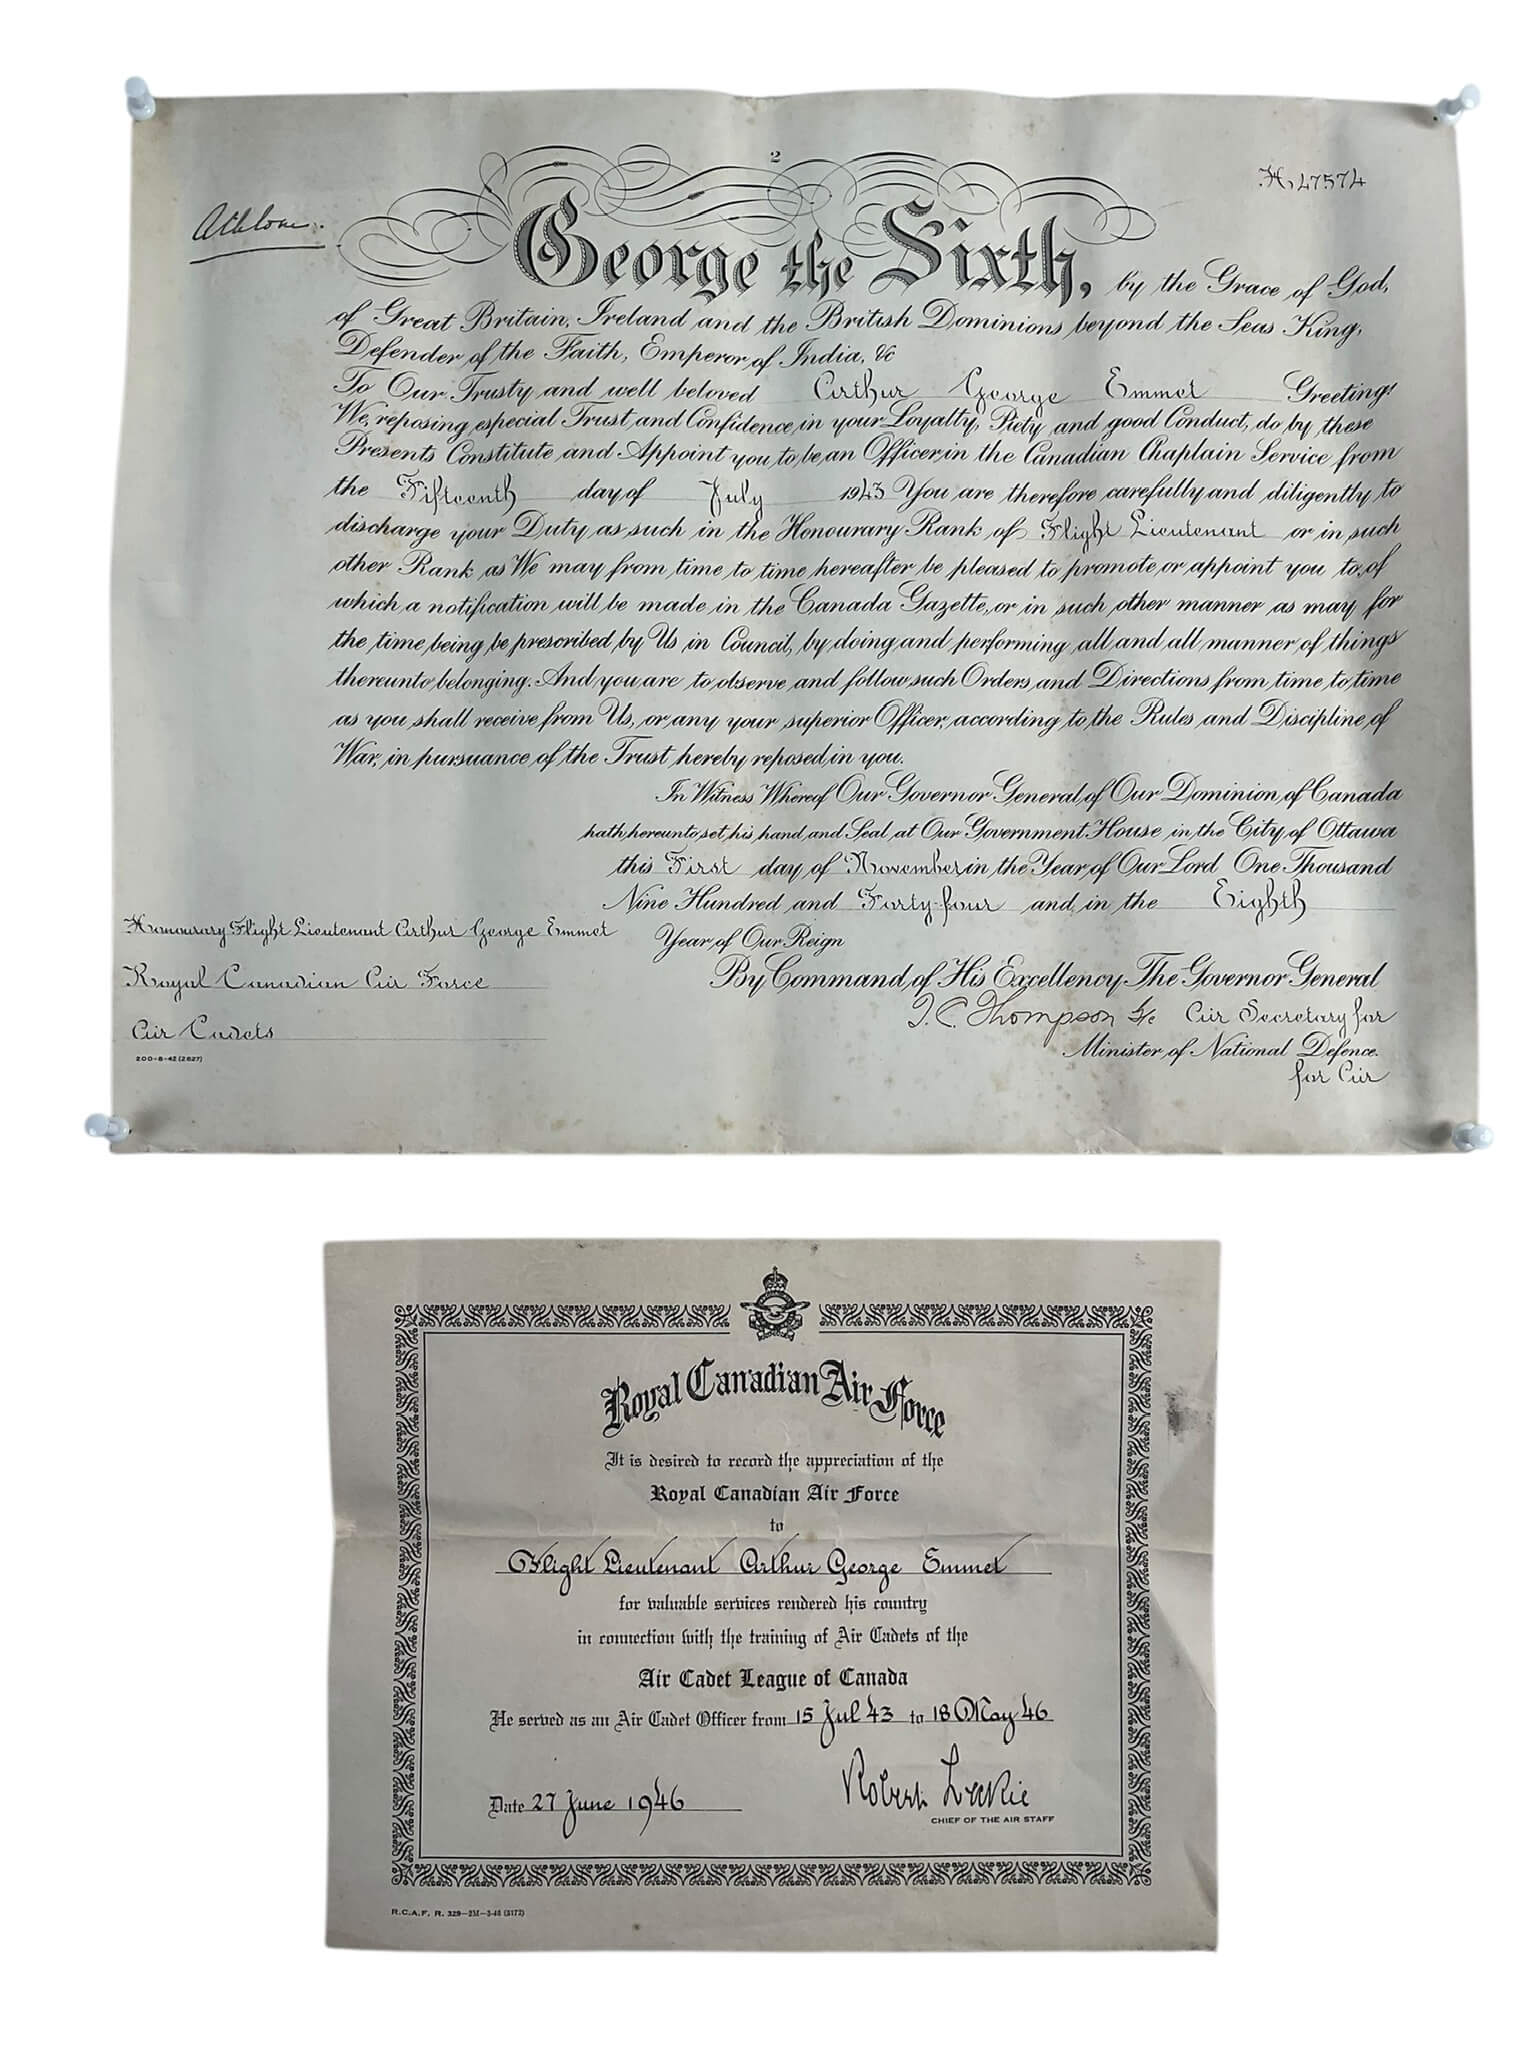 2
H, 47574
Athlone.
George the Sixth, by the Grace of God,
of Great Britain, Ireland and the British Dominions beyond the Seas King,
Defender of the Faith, Emperor of India, &c
To Our Trusty and well beloved Arthur George Emmet Greeting:
We, reposing especial Trust and Confidence in your Loyalty, Piety and good Conduct, do by these
Presents Constitute and Appoint you to be an Officer in the Canadian Chaplain Service from
the Fifteenth day of July 1943 You are therefore carefully and diligently to
discharge your Duty as such in the Honourary Rank of Flight Lieutenant or in such
other Rank as We may from time to time hereafter be pleased to promote or appoint you to, of
which a notification will be made in the Canada Gazette, or in such other manner as may for
the time being be prescribed by Us in Council, by doing and performing all and all manner of things
thereunto belonging. And you are to observe and follow such Orders and Directions from time to time
as you shall receive from Us, or any your superior Officer, according to the Rules and Discipline of
War, in pursuance of the Trust hereby reposed in you.
In Witness Whereof Our Governor General of Our Dominion of Canada
hath hereunto set his hand and Seal at Our Government House in the City of Ottawa
this First day of November in the Year of Our Lord One Thousand
Nine Hundred and Forty-four and in the Eighth
Year of Our Reign
By Command of His Excellency The Governor General
Honourary Flight Lieutenant Arthur George Emmet
Royal Canadian Air Force
Air Cadets
200-8-42 (2627)
Thompson Air Secretary for
Minister of National Defence.
for Air
Royal Canadian Air Force
It is desired to record the appreciation of the
Royal Canadian Air Force
to
Flight Lieutenant Arthur George Emmet
for valuable services rendered his country
in connection with the training of Air Cadets of the
Air Cadet League of Canada
He served as an Air Cadet Officer from 15 Jul 43 to 18 May 46
Date 27 June 1946
Robert Leckie
CHIEF OF THE AIR STAFF
R.C.A.F. R. 329—2M—3-46 (3172)